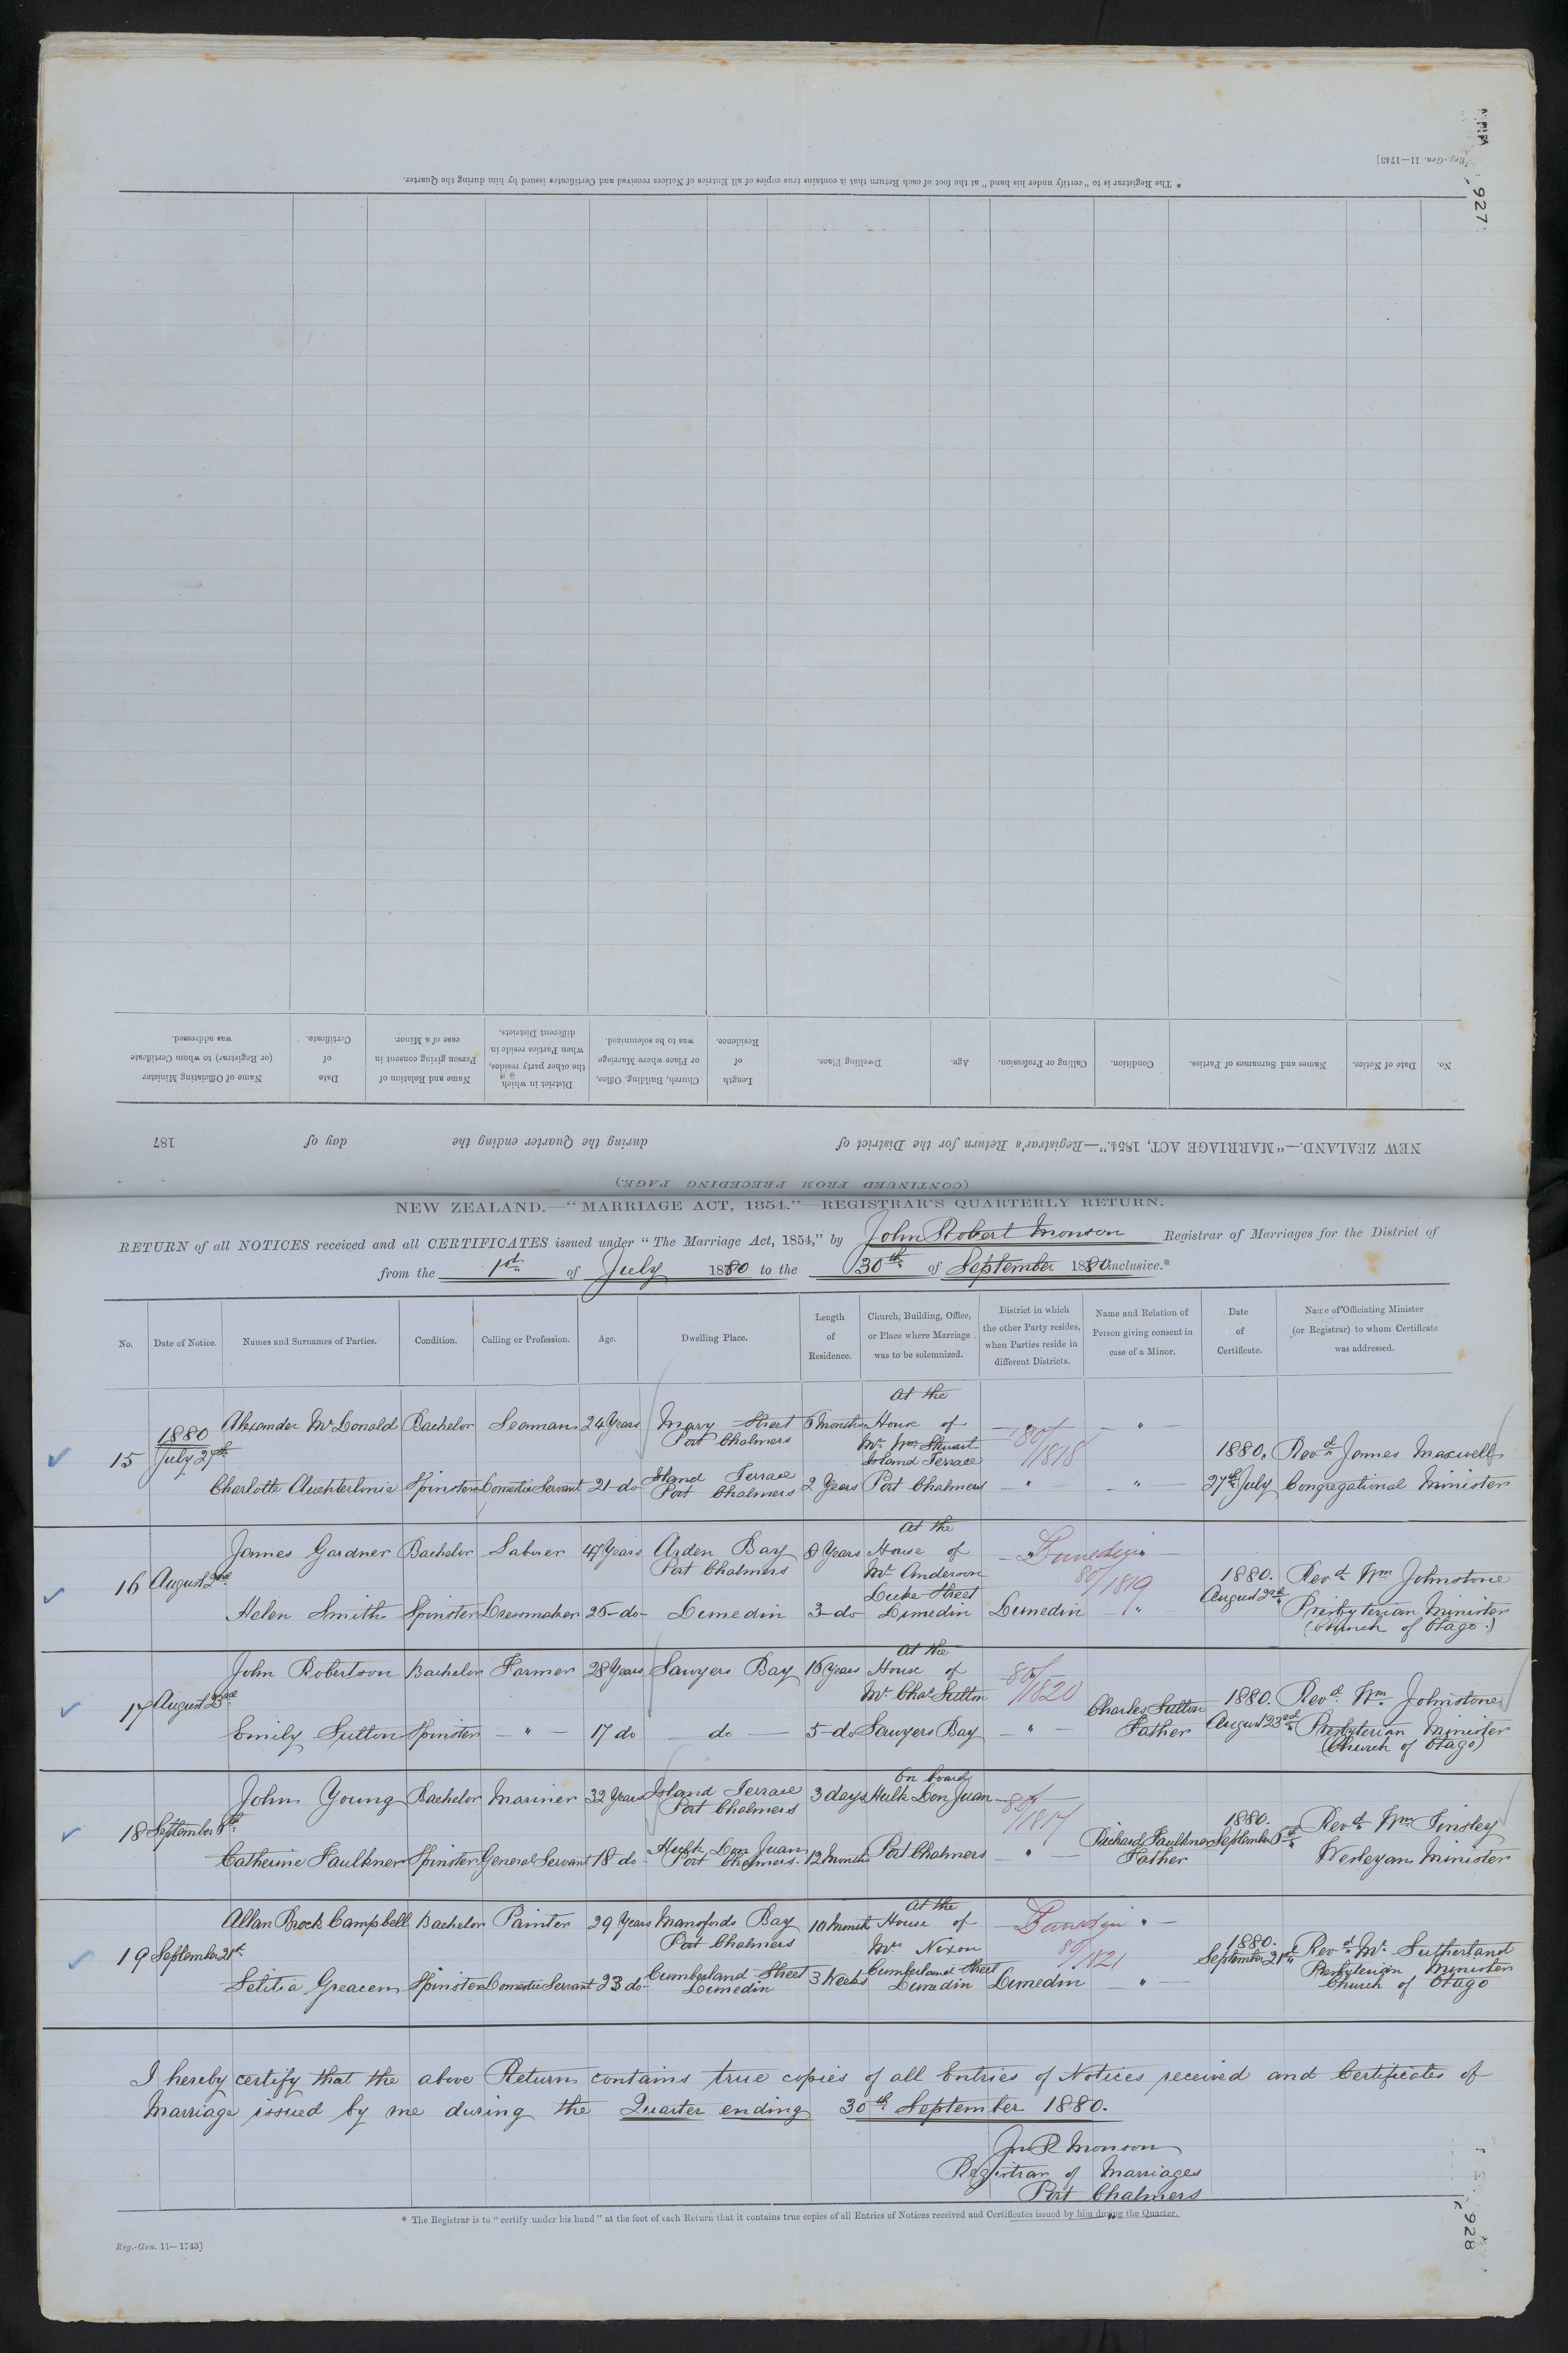 927
Reg.-Gen. 11—1743]
* The Registrar is to "certify under his hand" at the foot of each Return that it contains true copies of all Entries of Notices received and Certificates issued by him during the Quarter.
No.
Date of Notice.
Names and Surnames of Parties.
Condition.
Calling or Profession.
Age.
Dwelling Place.
Length of Residence.
Church, Building, Office, or Place where Marriage was to be solemnized.
District in which the other party resides, when Parties reside in different Districts.
Name and Relation of Person giving consent in case of a Minor.
Date of Certificate.
Name of Officiating Minister (or Registrar) to whom Certificate was addressed.
NEW ZEALAND.—"MARRIAGE ACT, 1854."—Registrar's Return for the District of during the Quarter ending the day of 187
(CONTINUED FROM PRECEDING PAGE)
NEW ZEALAND.—"MARRIAGE ACT, 1854."—REGISTRAR'S QUARTERLY RETURN.
RETURN of all NOTICES received and all CERTIFICATES issued under "The Marriage Act, 1854," by John Robert Monson Registrar of Marriages for the District of
from the 1st of July 1880 to the 30th of September 1880 inclusive.*
No.
Date of Notice.
Names and Surnames of Parties.
Condition.
Calling or Profession.
Age.
Dwelling Place.
Length of Residence.
Church, Building, Office, or Place where Marriage was to be solemnized.
District in which the other Party resides, when Parties reside in different Districts.
Name and Relation of Person giving consent in case of a Minor.
Date of Certificate.
Name of Officiating Minister (or Registrar) to whom Certificate was addressed.
15 1880 July 27th
Alexander McDonald Bachelor Seaman 24 Years Mary Street Port Chalmers 6 Months At the House of Mr Wm Stewart Island Terrace " "
80/1818
Charlotte Auchterlonie Spinster Domestic Servant 21 do Island Terrace Port Chalmers 2 Years Port Chalmers " " 1880. 27th July Revd James Maxwell Congregational Minister
16 August 2nd
James Gardner Bachelor Laborer 47 Years Arden Bay Port Chalmers 8 Years At the House of Mr Anderson Leith Street Dunedin "
80/1819
Helen Smith Spinster Dressmaker 26 do Dunedin 3 do Dunedin Dunedin " 1880. August 2nd Revd Wm Johnstone Presbyterian Minister (Church of Otago.)
17 August 23rd
John Robertson Bachelor Farmer 28 Years Sawyers Bay 16 Years At the House of Mr Chas Sutton
80/1820
Emily Sutton Spinster " 17 do do 5 do Sawyers Bay " Charles Sutton Father 1880. August 23rd Revd Wm Johnstone Presbyterian Minister (Church of Otago)
18 September 8th
John Young Bachelor Mariner 32 Years Island Terrace Port Chalmers 3 days On board Hulk Don Juan
80/1817
Catherine Faulkner Spinster General Servant 18 do Hulk Don Juan Port Chalmers. 12 Months Port Chalmers " Richard Faulkner Father 1880. September Revd Wm Tinsley Wesleyan Minister
19 September 21st
Allan Brock Campbell Bachelor Painter 29 Years Mansfords Bay Port Chalmers 10 Month At the House of Mrs Nixon Dunedin "
80/1821
Letitia Greacen Spinster Domestic Servant 23 do Cumberland Street Dunedin 3 Weeks Cumberland Street Dunedin Dunedin " 1880. September 21st Revd Mr Sutherland Presbyterian Minister Church of Otago
I hereby certify that the above Return contains true copies of all Entries of Notices received and Certificates of
Marriage issued by me during the Quarter ending 30th September 1880.
Jn R Monson
Registrar of Marriages
Port Chalmers
* The Registrar is to "certify under his hand" at the foot of each Return that it contains true copies of all Entries of Notices received and Certificates issued by him during the Quarter.
Reg.-Gen. 11—1743]
928